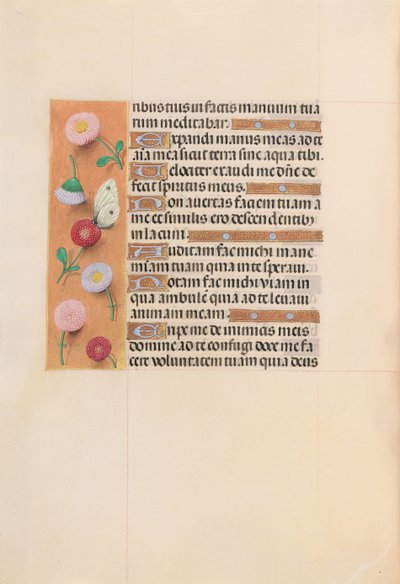 ribus tuis in factis manuum tua
rum meditabar.
Expandi manus meas ad te
aīa mea sicut terra sine aqua tibi.
Velociter exaudi me dn̄e de
fecit spiritus meus.
Non avertas faciem tuam a
me et similis ero descendentibus
in lacum.
Auditam fac michi mane
miam tuam quia in te speravi.
Notam fac michi viam in
qua ambulē quia ad te levavi
animam meam.
Eripe me de inimicis meis
domine ad te confugi doce me fa
cere voluntatem tuam quia deus